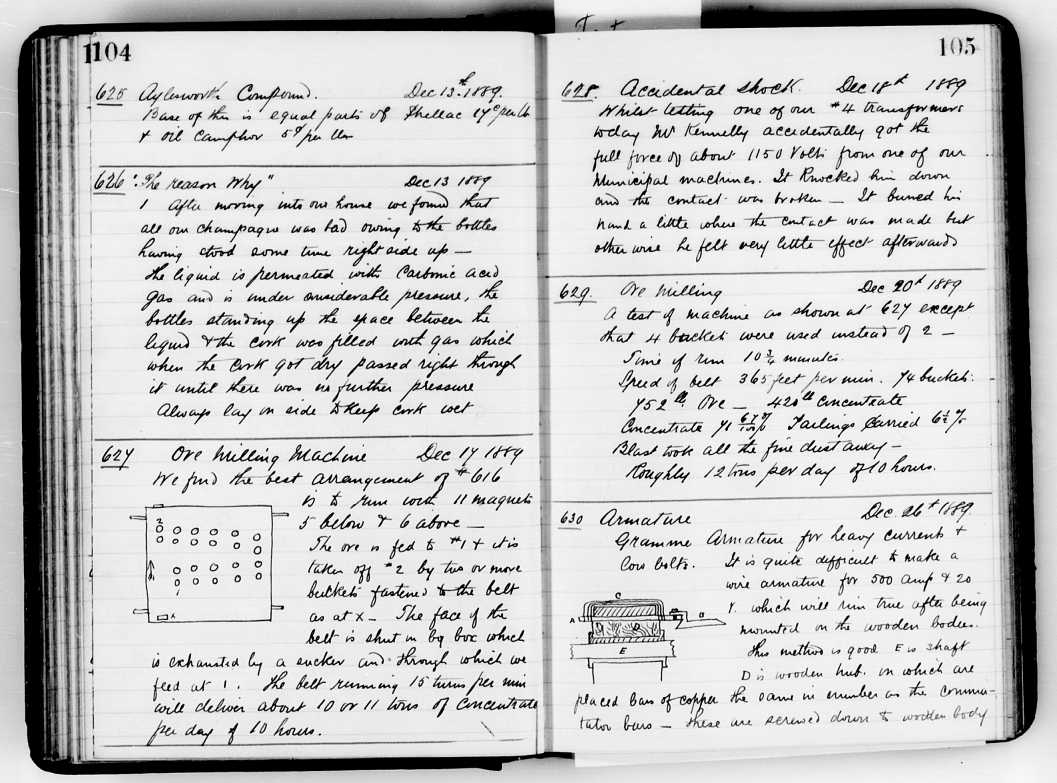 104
625 Aylsworth Compound. Dec 13th 1889.
Base of this is equal parts of Shellac 17c per lb
& oil Camphor 5c per lb
626 "The reason Why" Dec 13 1889
1 After moving into our house we found that
all our champagne was bad owing to the bottles
having stood some time right side up —
the liquid is permeated with Carbonic acid
gas and is under considerable pressure, the
bottles standing up the space between the
liquid & the cork was filled with gas which
when the cork got dry passed right through
it until there was no further pressure
Always lay on side to keep cork wet
627 Ore Milling Machine Dec 17 1889
We find the best arrangement of #616
is to run with 11 magnets
5 below & 6 above —
The ore is fed to #1 & it is
taken off #2 by two or more
buckets fastened to the belt
as at x — The face of the
belt is shut in by box which
is exhausted by a sucker and through which we
feed at 1. The belt running 15 turns per min
will deliver about 10 or 11 tons of Concentrate
per day of 10 hours.
2
1
x
105
628. Accidental shock. Dec 18th 1889
Whilst testing one of our #4 transformers
today Mr Kennelly accidentally got the
full force of about 1150 Volts from one of our
Municipal machines. It Knocked him down
and the contact was broken — It burned his
hand a little where the contact was made but
otherwise he felt very little effect afterwards
629. Ore Milling Dec 20th 1889
A test of machine as shown at 627 except
that 4 buckets were used instead of 2 —
Time of run 10 3/4 minutes.
Speed of belt 365 feet per min. 74 buckets.
752 lb. Ore — 420 lb Concentrate
Concentrate 71 67/100 % Tailings Carried 6 1/2 %
Blast took all the fine dust away —
Roughly 12 tons per day of 10 hours.
630 Armature Dec. 26th 1889.
Gramme Armature for heavy currents &
low volts. It is quite difficult to make a
wire armature for 500 Amp & 20
V. which will run true after being
mounted on the wooden bodies.
This method is good E is shaft
D is wooden hub. on which are
placed bars of copper the same in number as the commu-
tator bars — these are screwed down to wooden body
C
A
B
D
E